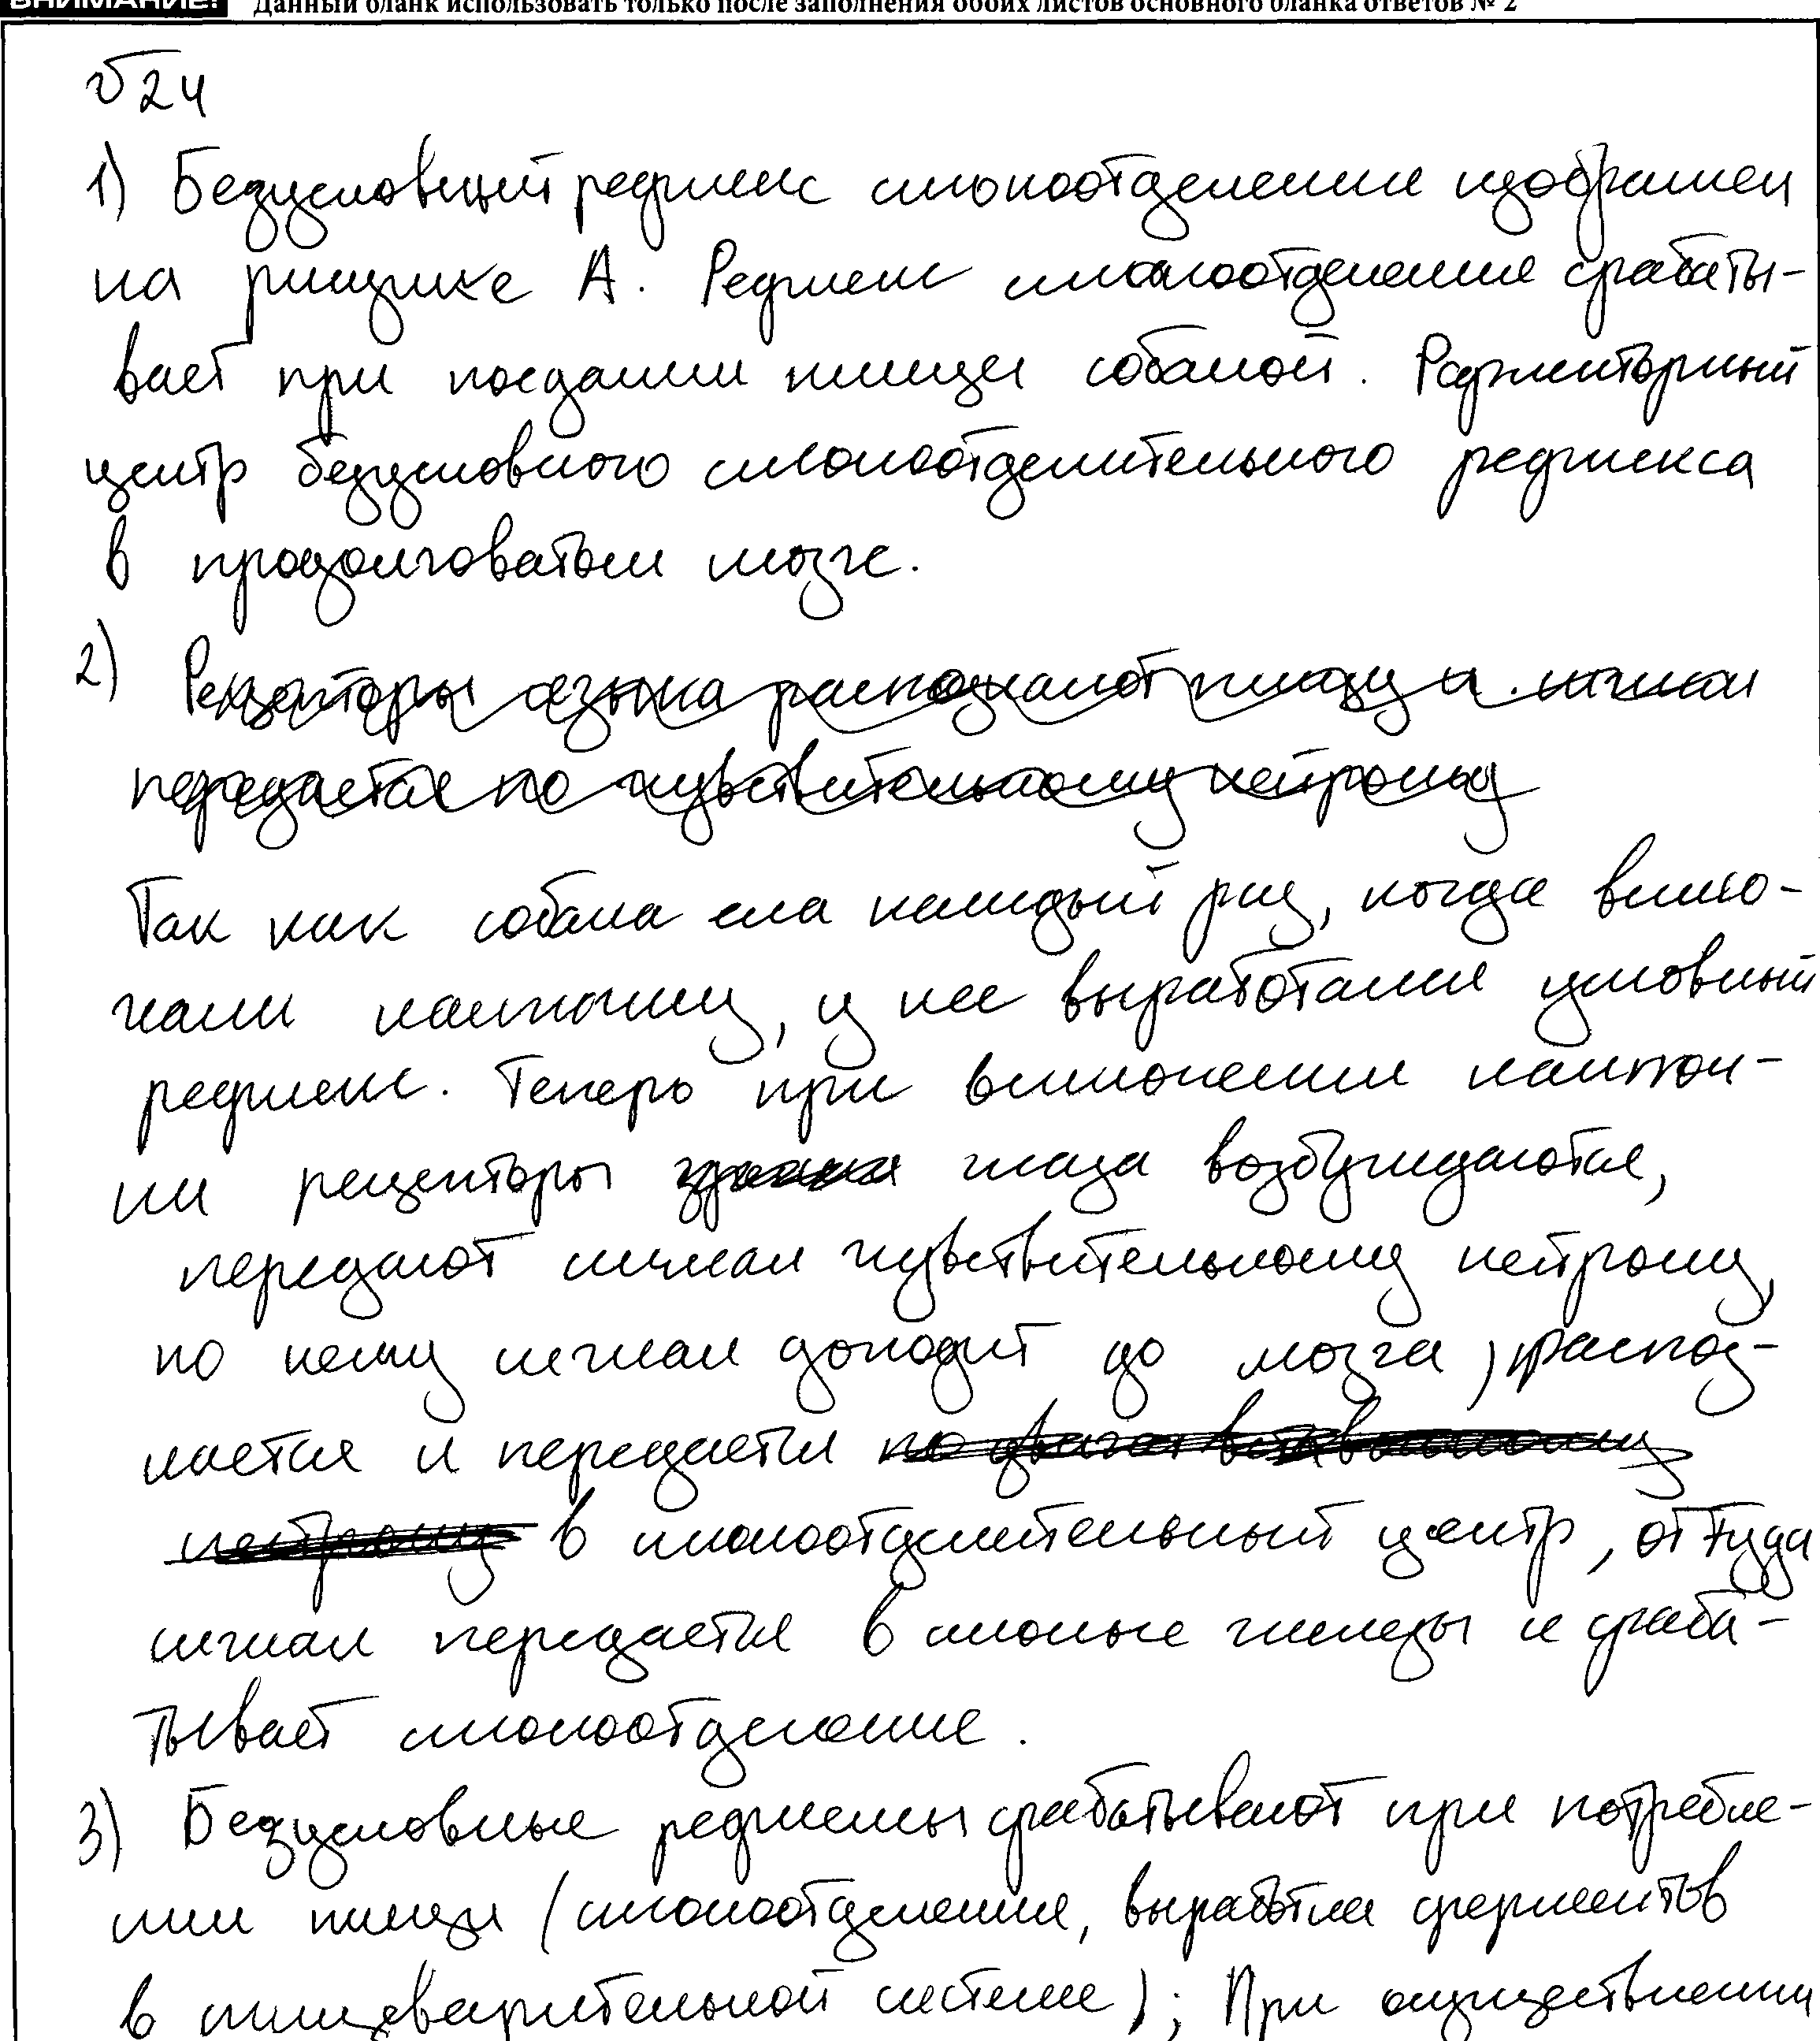 ВНИМАНИЕ! Данный бланк использовать только после заполнения обоих листов основного бланка ответов № 2
№24
1) Безусловный рефлекс слюноотделения изображен
на рисунке А. Рефлекс слюноотделения срабаты-
вает при поедании пищи собакой. Рефлекторный
центр безусловного слюноотделительного рефлекса
в продолговатом мозге.
2) Рецепторы языка распознают пищу и сигнал
передается по чувствительному нейрону
Так как собака ела каждый раз, когда вклю-
чали лампочку, у нее выработался условный
рефлекс. Теперь при включении лампоч-
ки рецепторы глаза возбуждаются,
передают сигнал чувствительному нейрону,
по нему сигнал доходит до мозга, распоз-
нается и передается
нейрону в слюноотделительный центр, оттуда
сигнал передается в слюные железы и сраба-
тывает слюноотделение.
3) Безусловные рефлексы срабатывают при потребле-
нии пищи (слюноотделение, выработка ферментов
в пищеварительной системе); При осуществлении